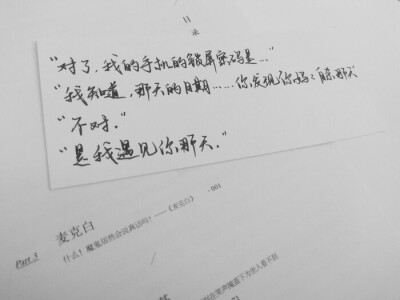 目
录
"对了，我的手机的锁屏密码是…"
"我知道，那天的日期……你发现你妈妈自杀那天
"不对。"
"是我遇见你那天。"
Part 1
麦克白
·001
什么！魔鬼居然会说真话吗？——《麦克白》